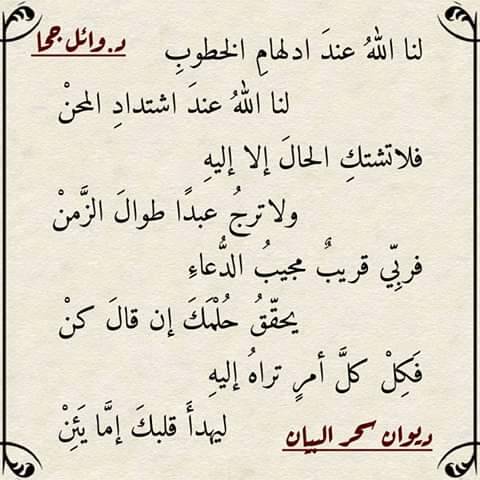 د.وائل جحا
لنا اللهُ عندَ ادلهامِ الخطوبِ
لنا اللهُ عندَ اشتدادِ المحنْ
فلاتشتكِ الحالَ إلا إليهِ
ولاترجُ عبدًا طوالَ الزَّمنْ
فربِّي قريبٌ مجيبُ الدُّعاءِ
يحقّقُ حُلْمَكَ إن قالَ كنْ
فَكِلْ كلَّ أمرٍ تراهُ إليهِ
ليهدأَ قلبكَ إمَّا يَئِنْ
ديوان سحر البيان